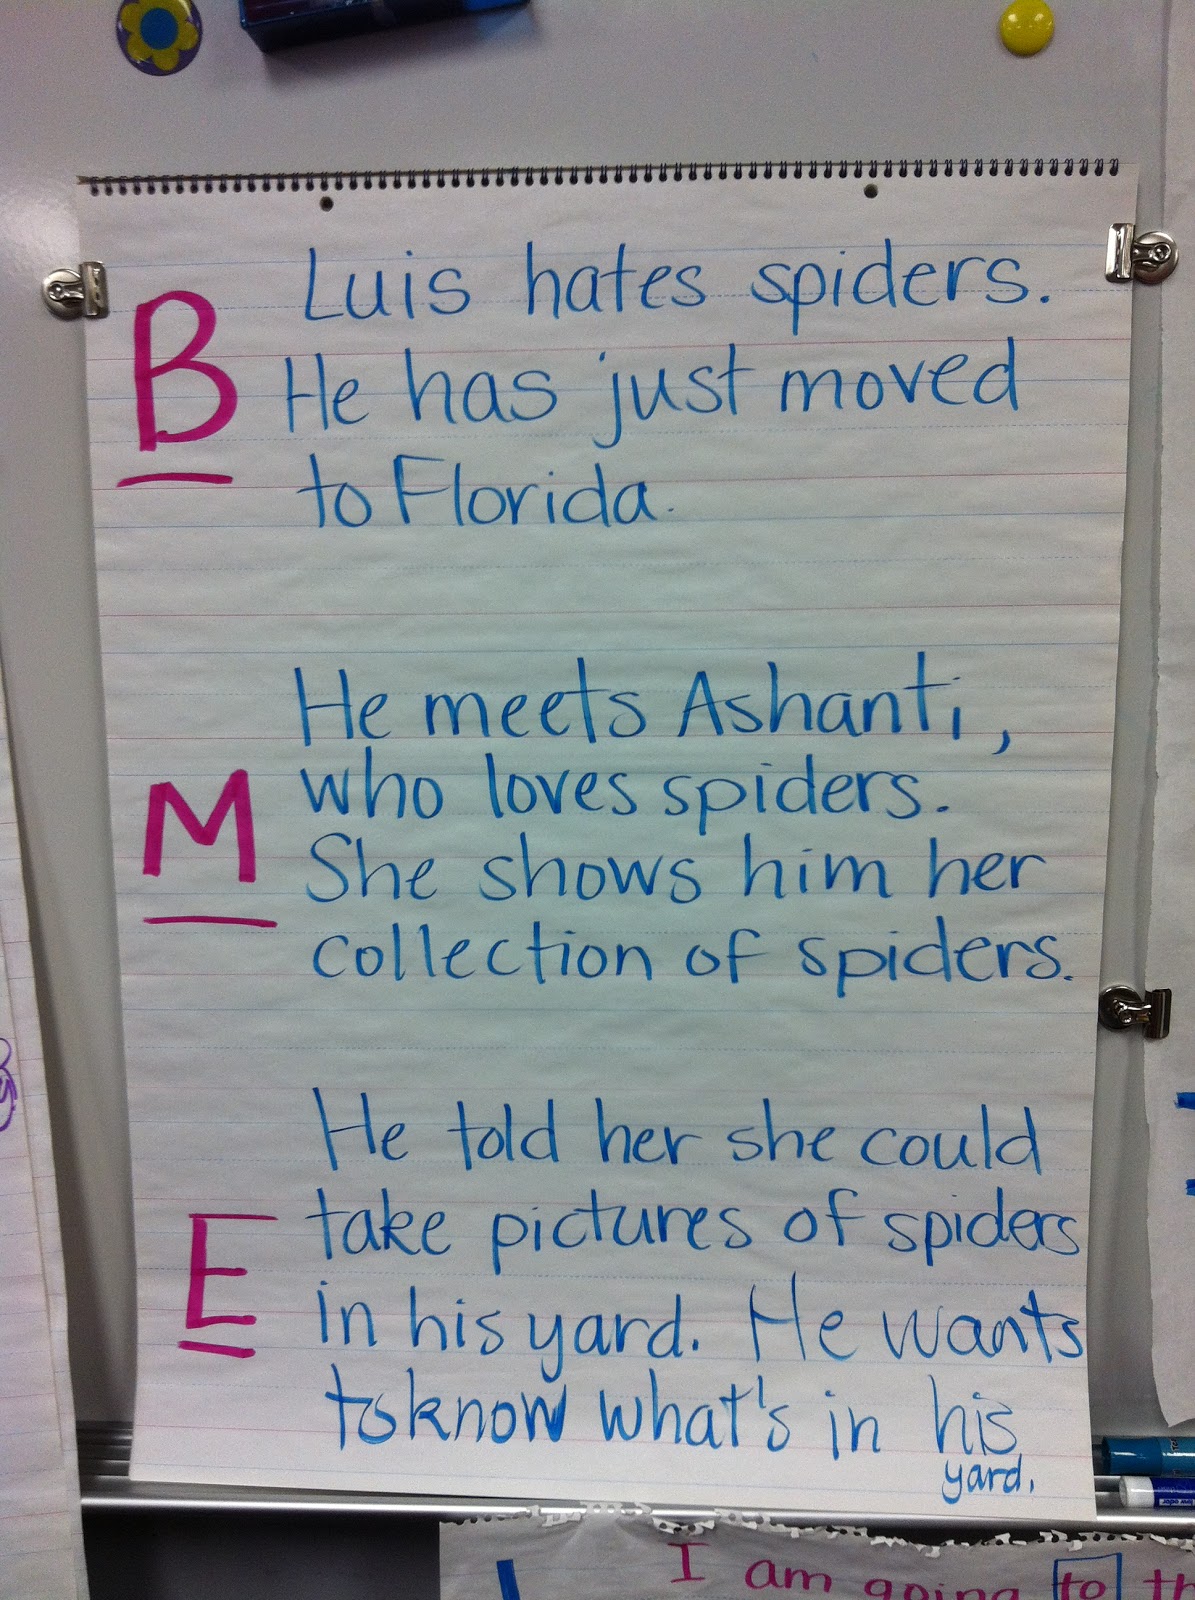 B
Luis hates spiders.
He has just moved
to Florida.
M
He meets Ashanti,
who loves spiders.
She shows him her
collection of spiders.
E
He told her she could
take pictures of spiders
in his yard. He wants
to know what's in his
yard.
I am going to th